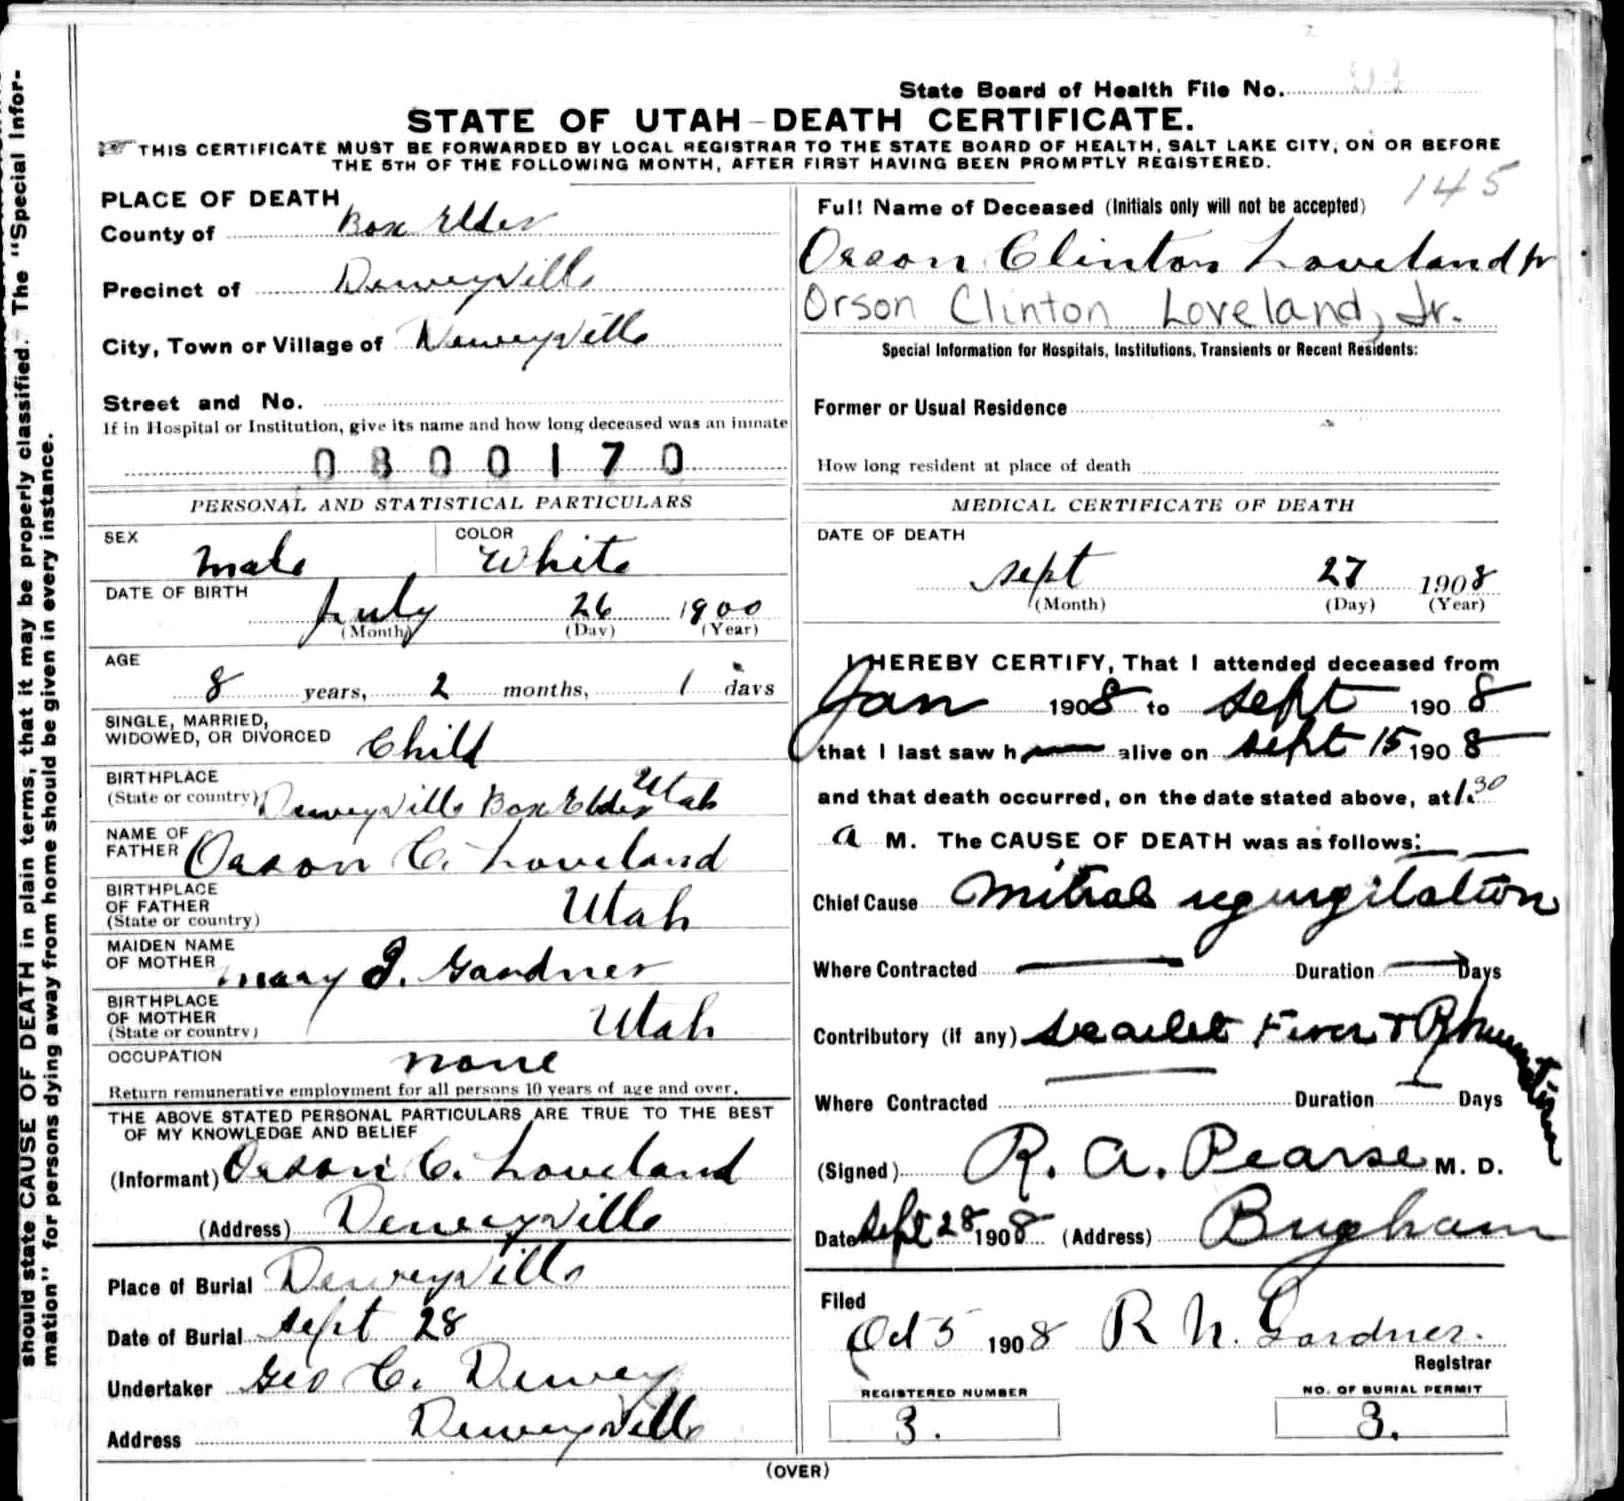 State Board of Health File No.
STATE OF UTAH–DEATH CERTIFICATE.
☞ THIS CERTIFICATE MUST BE FORWARDED BY LOCAL REGISTRAR TO THE STATE BOARD OF HEALTH, SALT LAKE CITY, ON OR BEFORE
THE 5TH OF THE FOLLOWING MONTH, AFTER FIRST HAVING BEEN PROMPTLY REGISTERED.
145
should state CAUSE OF DEATH in plain terms, that it may be properly classified. The "Special Infor-
mation" for persons dying away from home should be given in every instance.
PLACE OF DEATH
County of Box Elder
Precinct of Deweyville
City, Town or Village of Deweyville
Street and No.
If in Hospital or Institution, give its name and how long deceased was an inmate
0800170
PERSONAL AND STATISTICAL PARTICULARS
SEX male COLOR White
DATE OF BIRTH
July 26 1900
(Month) (Day) (Year)
AGE
8 years, 2 months, 1 days
SINGLE, MARRIED,
WIDOWED, OR DIVORCED Child
BIRTHPLACE
(State or country) Deweyville Box Elder Utah
NAME OF
FATHER Orson C. Loveland
BIRTHPLACE
OF FATHER
(State or country) Utah
MAIDEN NAME
OF MOTHER Mary J. Gardner
BIRTHPLACE
OF MOTHER
(State or country) Utah
OCCUPATION none
Return remunerative employment for all persons 10 years of age and over.
THE ABOVE STATED PERSONAL PARTICULARS ARE TRUE TO THE BEST
OF MY KNOWLEDGE AND BELIEF
(Informant) Orson C. Loveland
(Address) Deweyville
Place of Burial Deweyville
Date of Burial Sept 28
Undertaker Geo C. Dewey
Address Deweyville
Full Name of Deceased (Initials only will not be accepted)
Orson Clinton Loveland Jr
Orson Clinton Loveland, Jr.
Special Information for Hospitals, Institutions, Transients or Recent Residents:
Former or Usual Residence
How long resident at place of death
MEDICAL CERTIFICATE OF DEATH
DATE OF DEATH
Sept 27 1908
(Month) (Day) (Year)
I HEREBY CERTIFY, That I attended deceased from
Jan 1908 to Sept 1908
that I last saw h— alive on Sept 15 1908
and that death occurred, on the date stated above, at 1.30
a M. The CAUSE OF DEATH was as follows:
Chief Cause Mitral regurgitation
Where Contracted — Duration — Days
Contributory (if any) Scarlet Fever & Rheumatism
Where Contracted — Duration — Days
(Signed) R. A. Pearse M. D.
Date Sept 28 1908 (Address) Brigham
Filed
Oct 5 1908 R N. Gardner.
Registrar
REGISTERED NUMBER
3.
NO. OF BURIAL PERMIT
3.
(OVER)